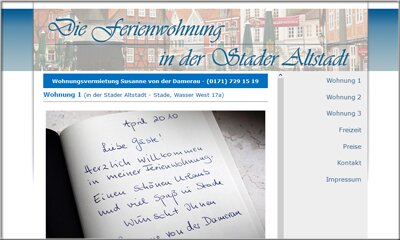 Die Ferienwohnung
in der Stader Altstadt
Wohnungsvermietung Susanne von der Damerau - (0171) 729 15 19
Wohnung 1 (in der Stader Altstadt - Stade, Wasser West 17a)
Wohnung 1
Wohnung 2
Wohnung 3
Freizeit
Preise
Kontakt
Impressum
April 2010
Liebe Gäste!
Herzlich Willkommen
in meiner Ferienwohnung.
Einen schönen Urlaub
und viel Spaß in Stade
wünscht Ihnen
von der Damerau